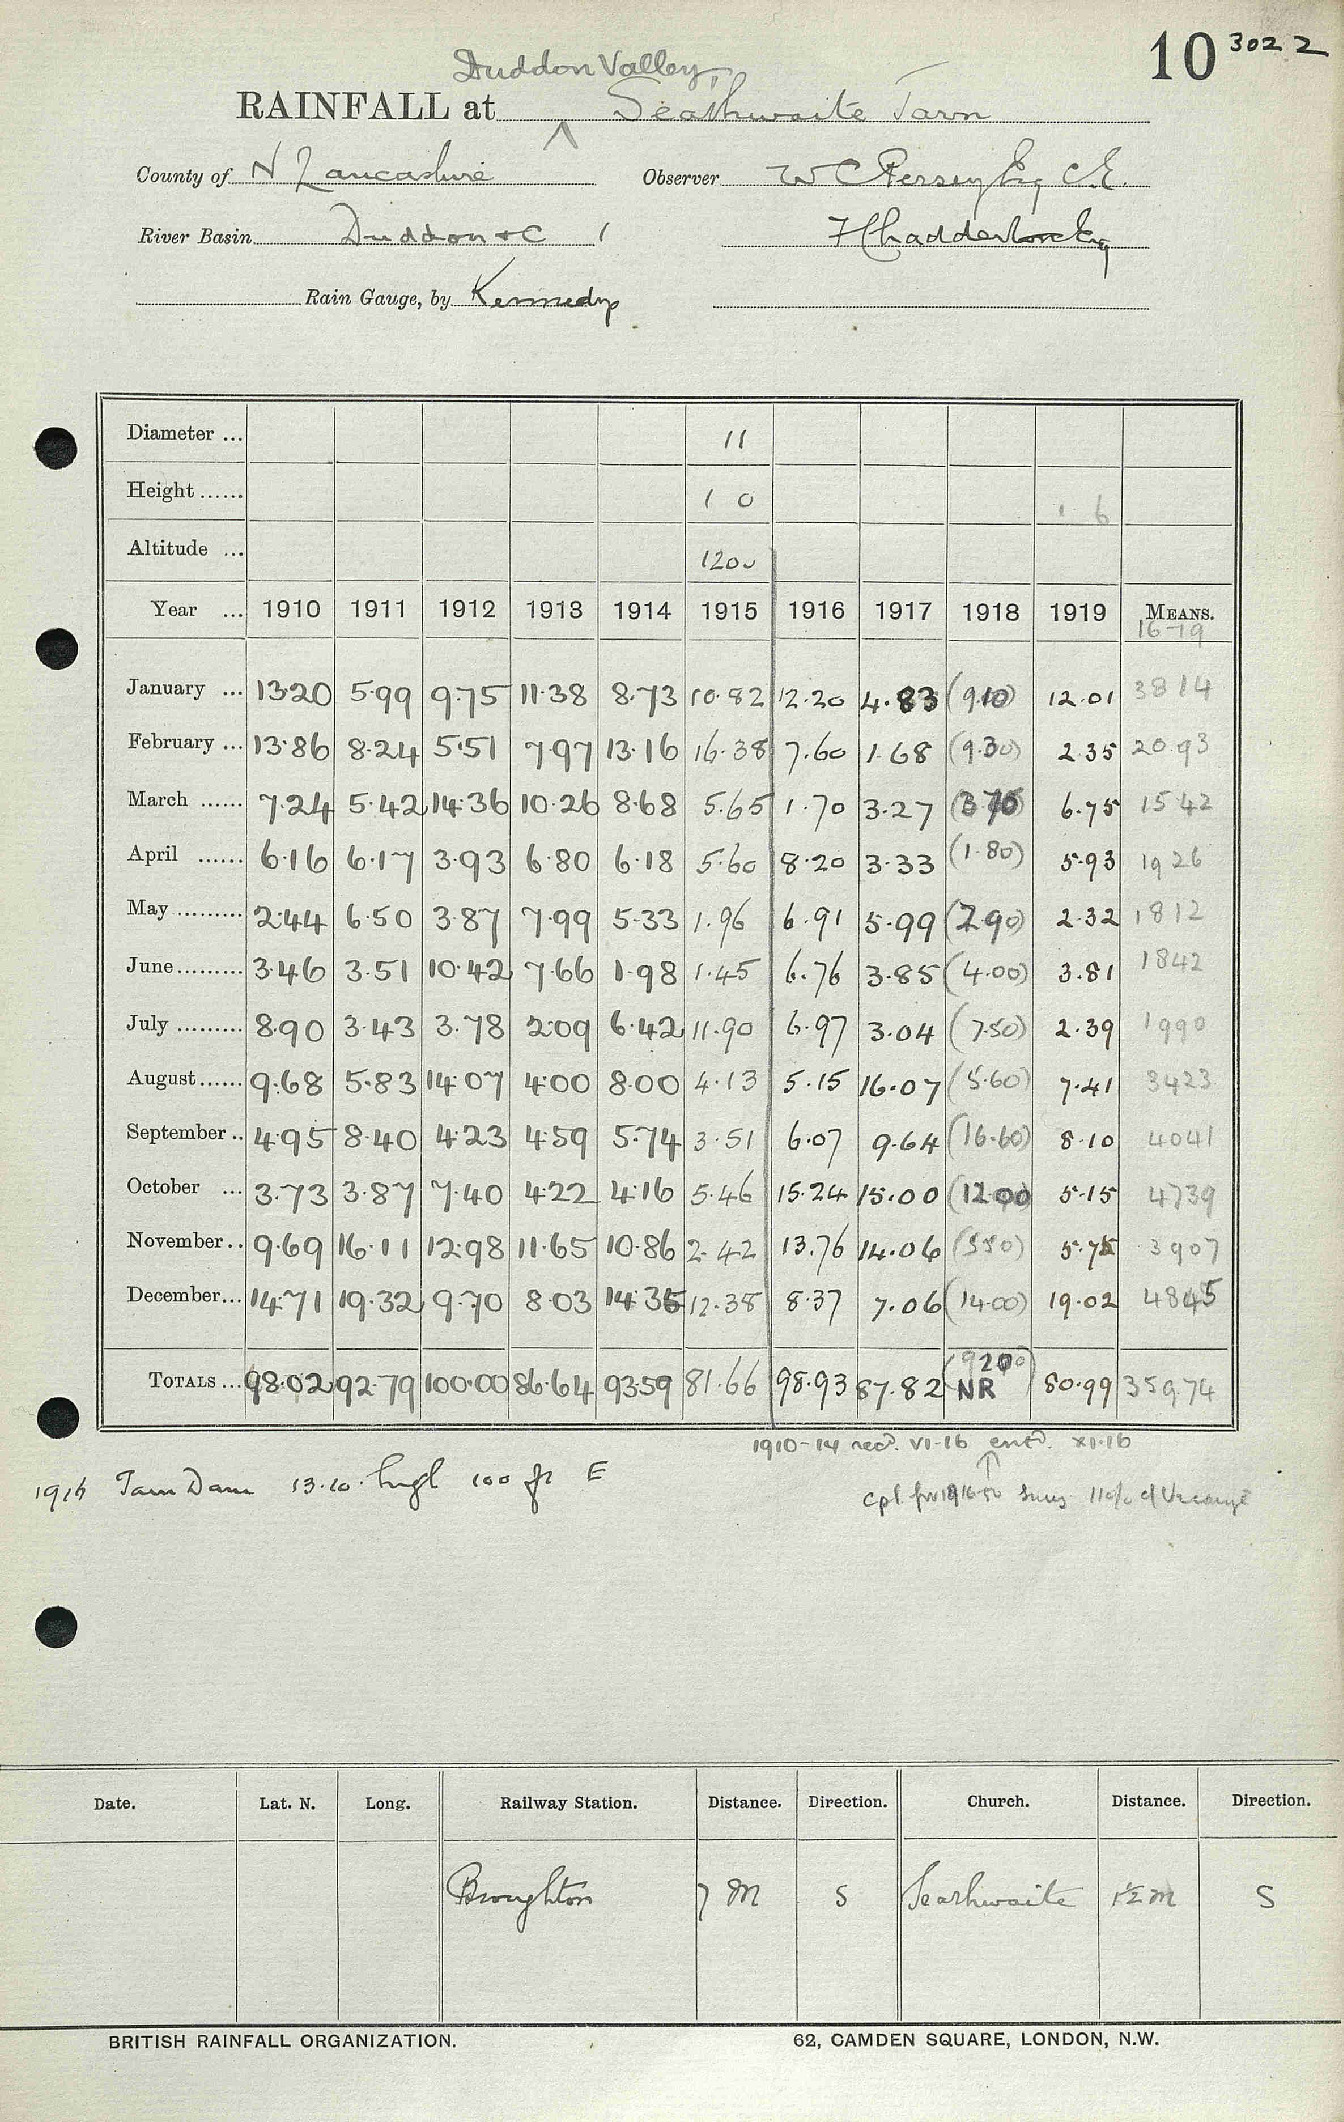 10 3022
Duddon Valley,
RAINFALL at Seathwaite Tarn
County of N Lancashire Observer W C Persey Esq C.E.
River Basin Duddon &C 1 F Chadderton Esq
Rain Gauge, by Kennedy
Diameter ... 11
Height ...... 1 0 1 6
Altitude ... 1200
Year ... 1910 1911 1912 1913 1914 1915 1916 1917 1918 1919 MEANS.
16-19
January ... 13.20 5.99 9.75 11.38 8.73 10.82 12.20 4.83 (9.10) 12.01 3814
February ... 13.86 8.24 5.51 7.97 13.16 16.38 7.60 1.68 (9.30) 2.35 2093
March ...... 7.24 5.42 14.36 10.26 8.68 5.65 1.70 3.27 (3.70) 6.75 1542
April ...... 6.16 6.17 3.93 6.80 6.18 5.60 8.20 3.33 (1.80) 5.93 1926
May ......... 2.44 6.50 3.87 7.99 5.33 1.96 6.91 5.99 (2.90) 2.32 1812
June ......... 3.46 3.51 10.42 7.66 1.98 1.45 6.76 3.85 (4.00) 3.81 1842
July ......... 8.90 3.43 3.78 2.09 6.42 11.90 6.97 3.04 (7.50) 2.39 1990
August ...... 9.68 5.83 14.07 4.00 8.00 4.13 5.15 16.07 (5.60) 7.41 3423
September .. 4.95 8.40 4.23 4.59 5.74 3.51 6.07 9.64 (16.60) 8.10 4041
October ... 3.73 3.87 7.40 4.22 4.16 5.46 15.24 15.00 (12.00) 5.15 4739
November .. 9.69 16.11 12.98 11.65 10.86 2.42 13.76 14.06 (5.50) 5.75 3907
December ... 14.71 19.32 9.70 8.03 14.35 12.38 8.37 7.06 (14.00) 19.02 4845
(92.00)
TOTALS ... 98.02 92.79 100.00 86.64 93.59 81.66 98.93 87.82 NR 80.99 35974
1910-14 recd. VI-16 entd. XI.16
1916 Tarn Dam 13.10. high 100 ft E
Date. Lat. N. Long. Railway Station. Distance. Direction. Church. Distance. Direction.
Broughton 7 M S Seathwaite 1½ m S
BRITISH RAINFALL ORGANIZATION. 62, CAMDEN SQUARE, LONDON, N.W.